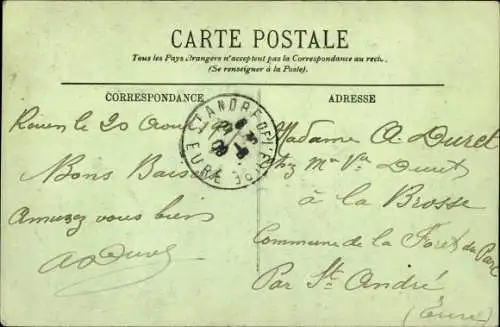 CARTE POSTALE
Tous les Pays étrangers n'acceptent pas la Correspondance au recto.
(Se renseigner à la Poste).
CORRESPONDANCE
ADRESSE
Rouen le 20 Aout
Bons Baisers
Amusez vous bien
A Duret
ST ANDRE DE L'EURE
EURE
Madame A. Duret
chez Mme Vve Duret
à la Brosse
Commune de la Foret du Parc
Par St André
(Eure)